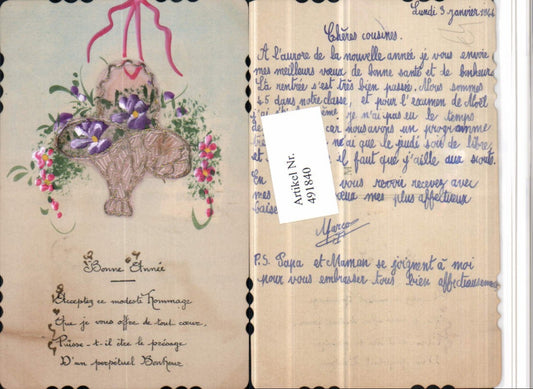 Bonne Année
Acceptez ce modeste Hommage
Que je vous offre de tout cœur,
Puisse-t-il être le présage
D'un perpétuel Bonheur
Lundi 3 janvier
Chères cousines.
A l'aurore de la nouvelle année je vous envoie
mes meilleurs vœux de bonne santé et de bonheur.
La rentrée s'est très bien passée. Nous sommes
45 dans notre classe, et pour l'examen de Noël
je n'ai pas eu le temps
car nous avions un programme
que le jeudi soir de libre,
et il faut que j'aille aux scouts.
En vous revoir recevez avec
mes vœux mes plus affectueux
baise
Marco
P.S. Papa et Maman se joignent à moi
pour vous embrasser tous bien affectueusement
Artikel Nr.
491840